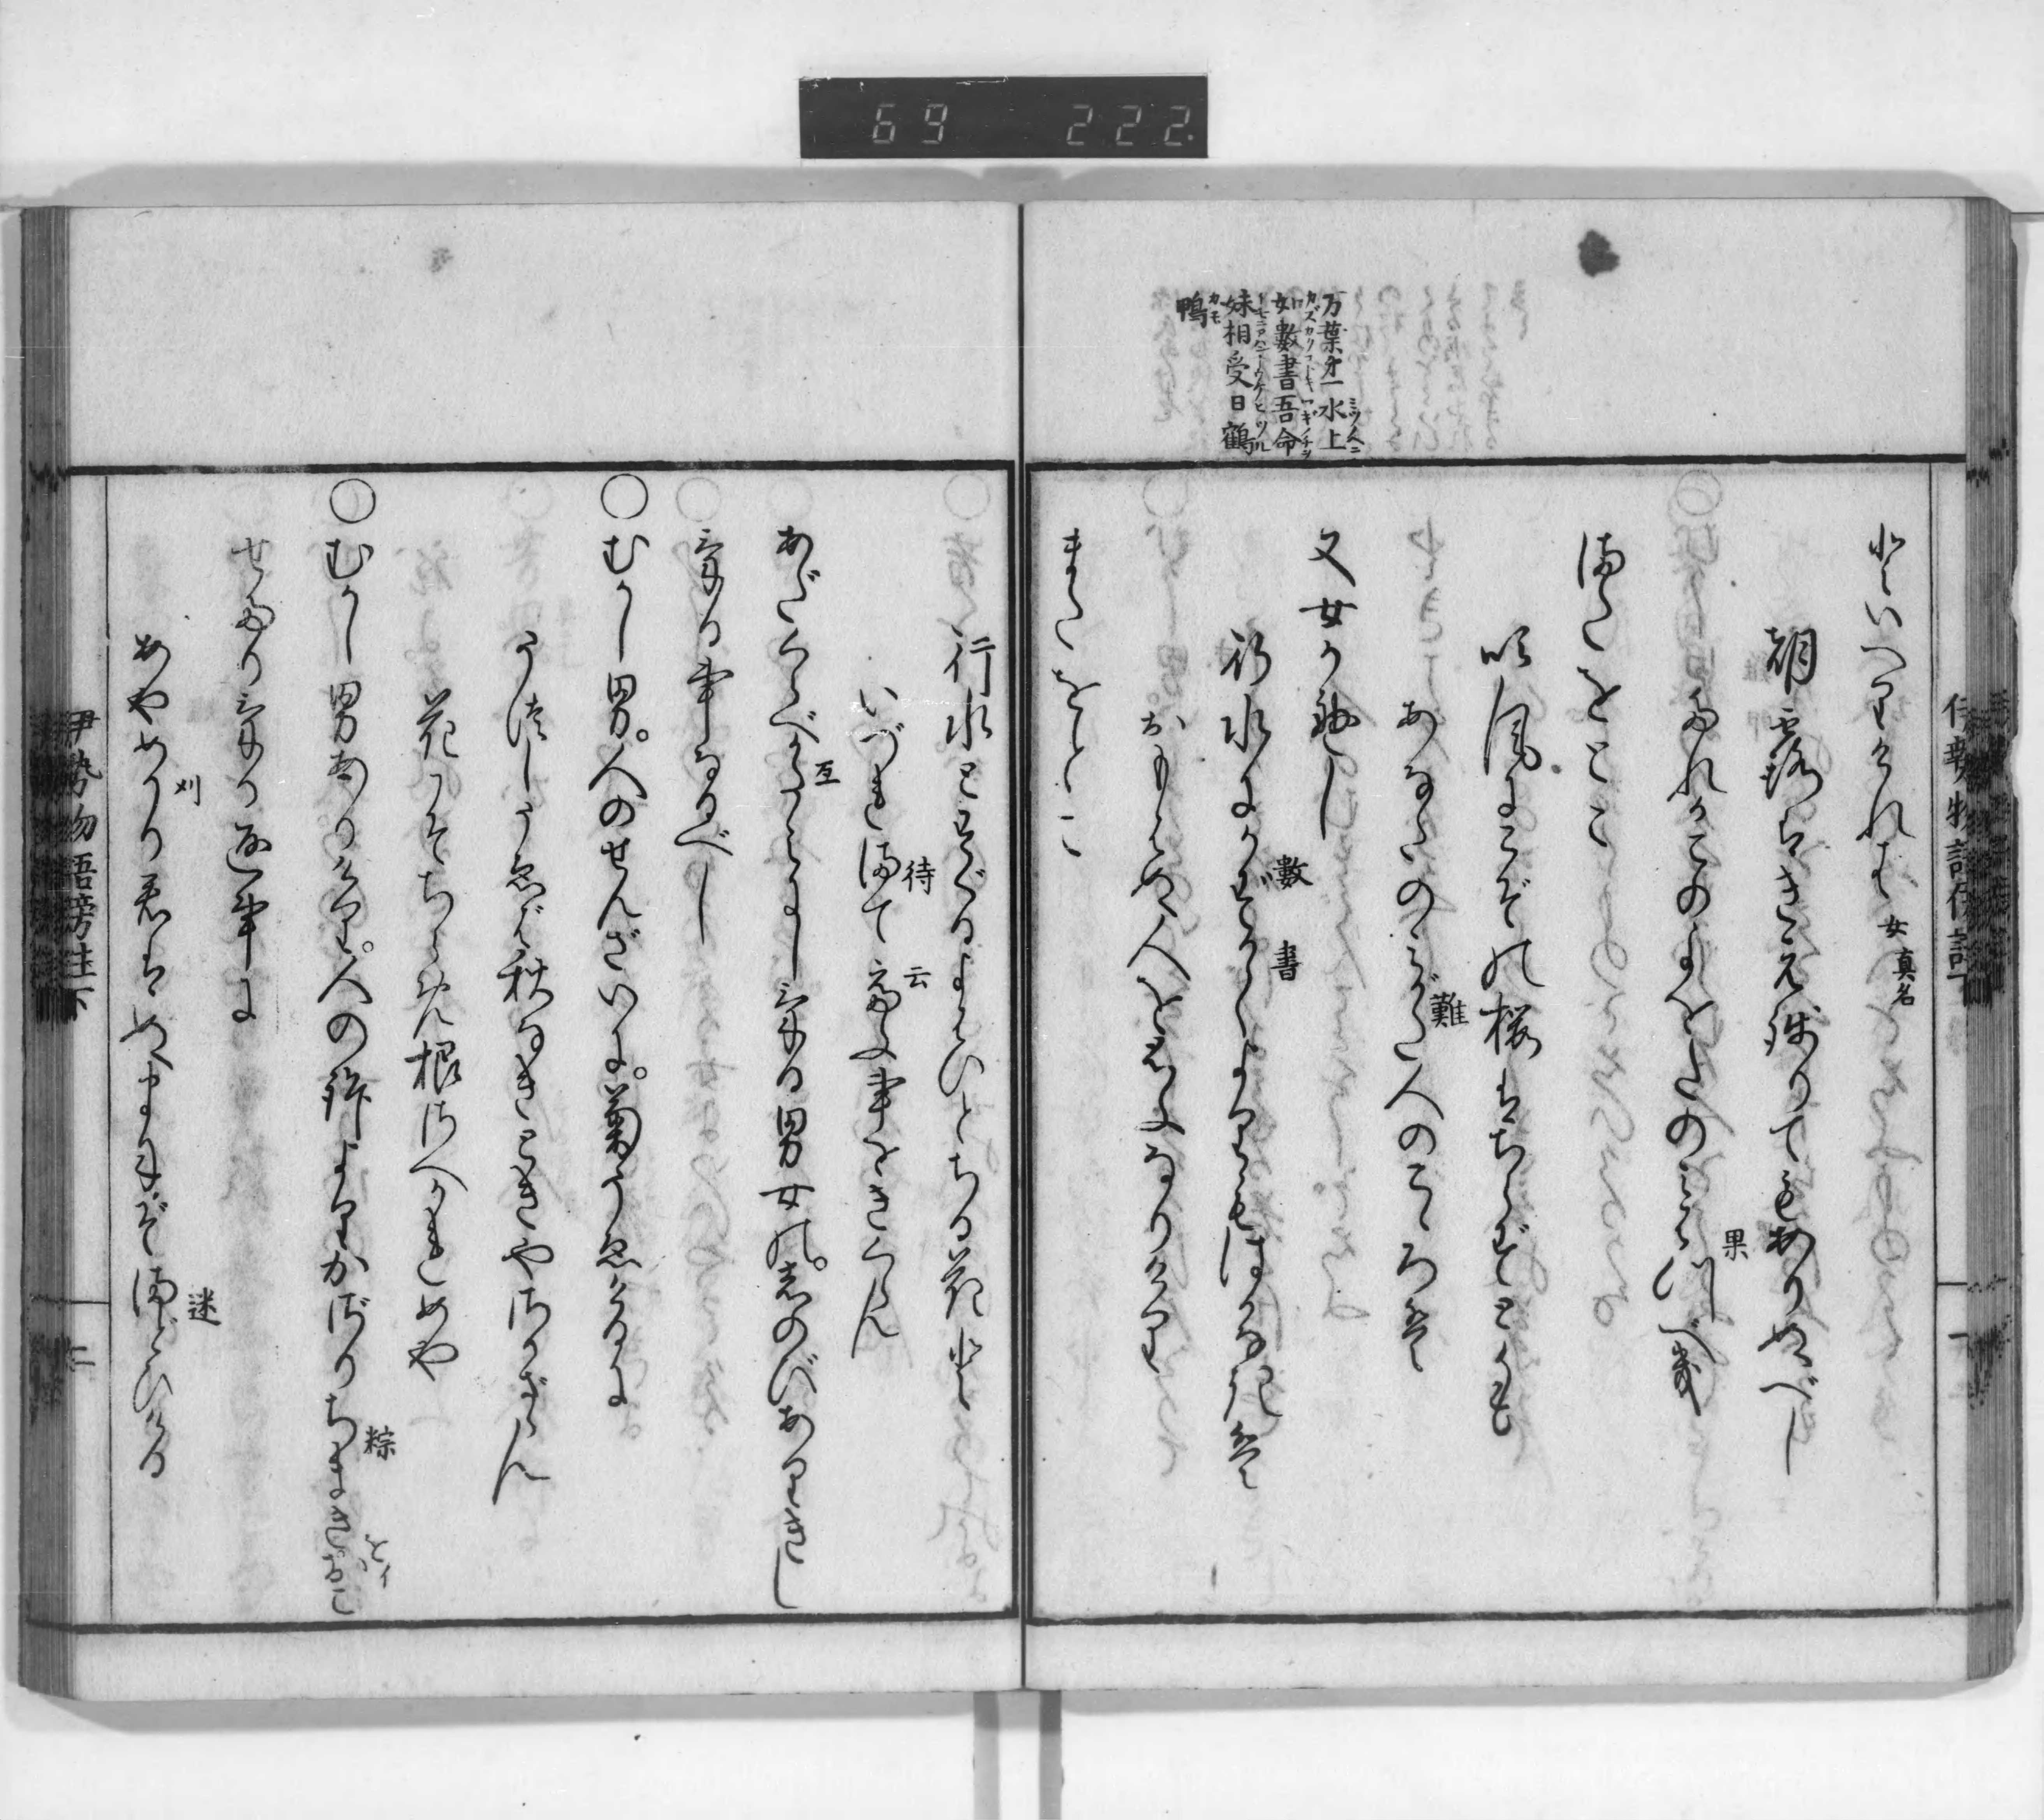 69 222
万葉第一水上
如數書吾命
妹相受日鶴
鴨
といへりけれは女真名
朝露はきえ残りてもありぬべし
たれかこのよをたのみはつべき
またをとこ
吹風にこぞの桜はちらずともかも
あなたのみがた人のこゝろは
又女かへし
行水にかずかくよりもはかなきは
おもはぬ人を思ふなりけり
またをとこ
行水とすぐるよはひとちる花と
いづれまてゝふ事をきくらん
あだくらべかたみにしける男女の。忍のびありきし
ける事なるべし
○むかし男。人のせんざいに。菊うゑけるに
うゑしうゑば秋なきときやさかざらん
花こそちらめ根さへかれめや
○むかし男ありけり。人の許よりかざりちまきおこ
せたりける返事に
あやめかり君はぬまにぞまどひける
伊勢物語傍註下
二
果
難
數
書
待
云
互
粽
とイ
刈
迷